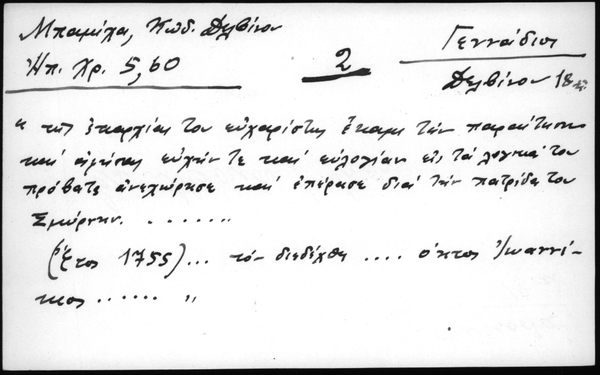 Μπαμίχα, Κώδ. Δελβίνου
Ἠπ. Χρ. 5, 60
2
Γεννάδιος
Δελβίνου 18
" τῆς ἐπαρχίας του εὐχαρίστως ἔκαμε τὴν παραίτησιν
καί ἀφήσας εὐχήν τε καί εὐλογίαν εἰς τά λογικά του
πρόβατα ἀνεχώρησε καί ἐπέρασε διά τήν πατρίδα του
Σμύρνην. . . . . . . . "
(Ἔτος 1755) ... τόν διεδέχθη .... ὁ κτος Ἰωαννί-
κιος ...... "